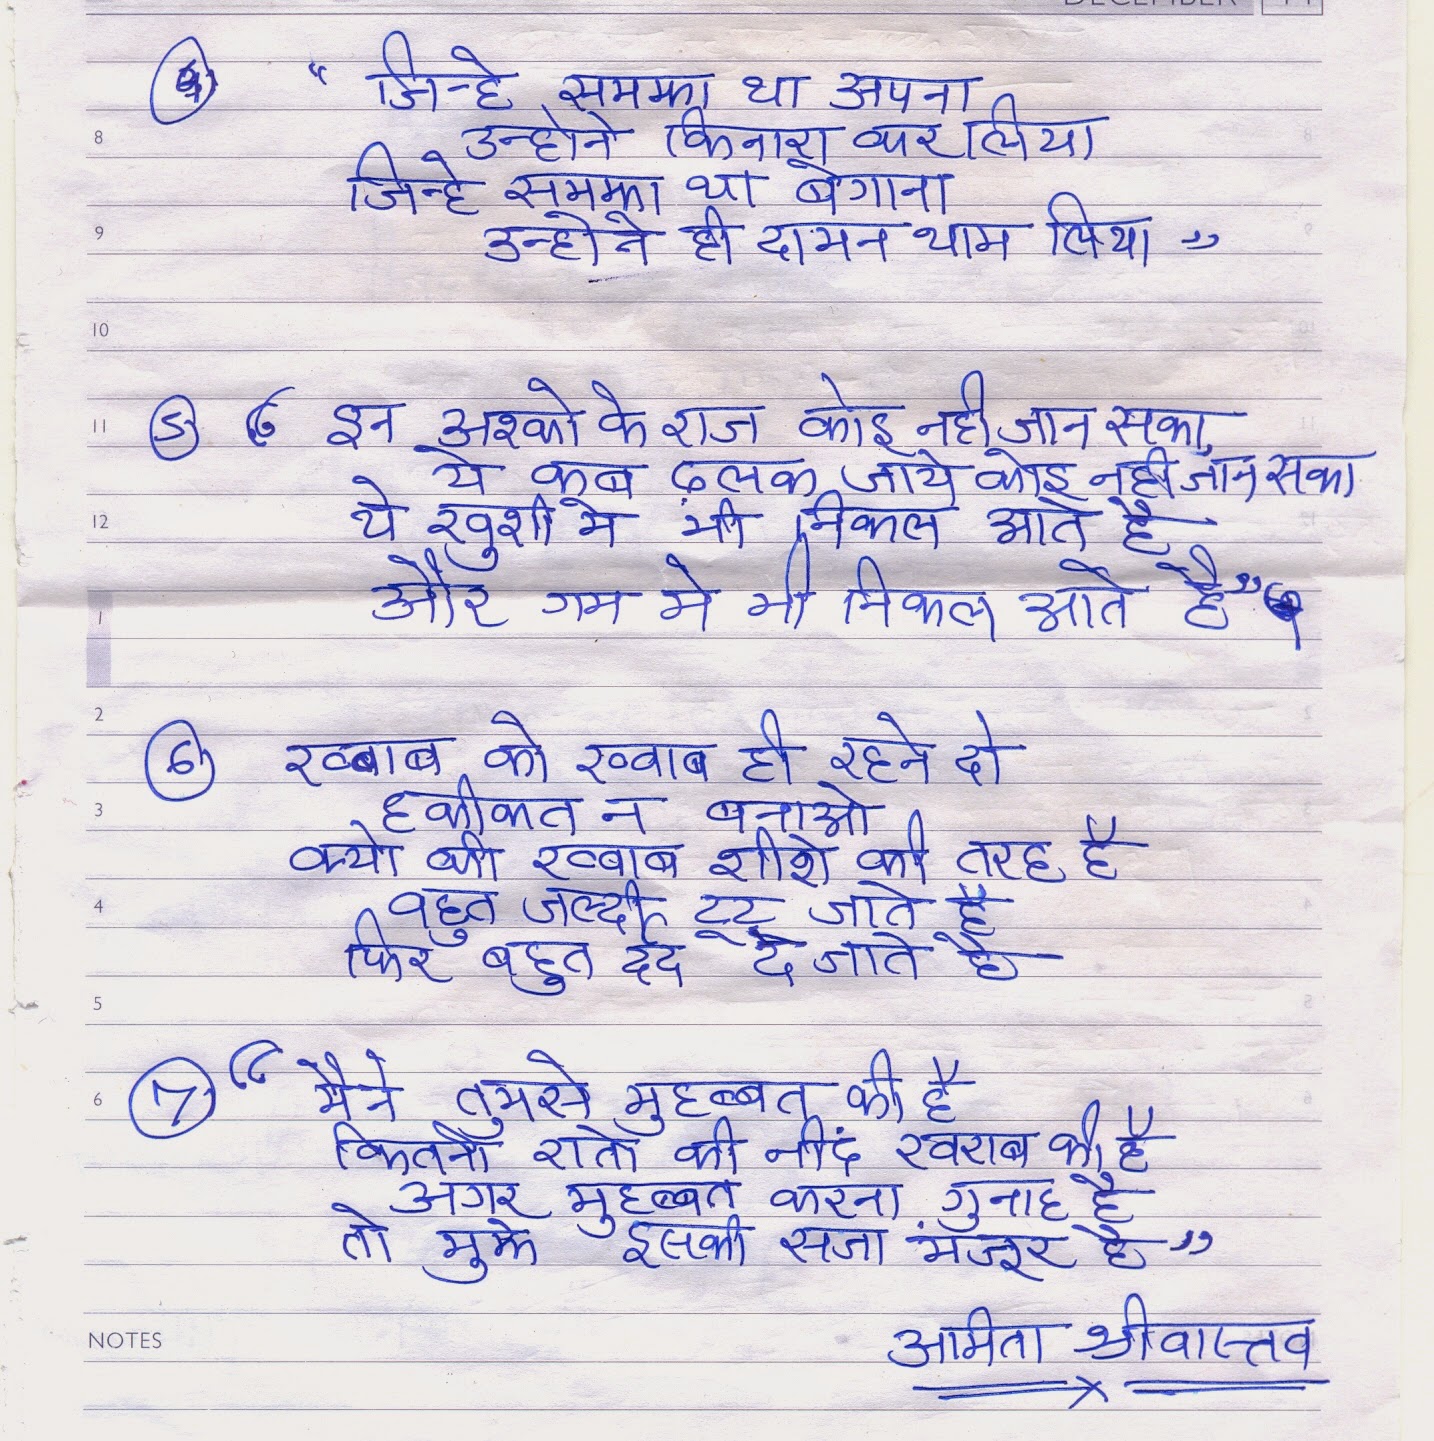 DECEMBER
④ “ जिन्हे समझा था अपना
8 उन्होने किनारा कर लिया
जिन्हे समझा था बेगाना
9 उन्होने ही दामन थाम लिया ”
10
11 ⑤ “ इन अश्को के राज कोइ नही जान सका
ये कब ढलक जाये कोइ नही जान सका
12 ये खुशी मे भी निकल आते है
1 और गम मे भी निकल आते है ”
2
⑥ ख्वाब को ख्वाब ही रहने दो
3 हकीकत न बनाओ
क्यो की ख्वाब शीशे की तरह है
4 बहुत जल्दी टूट जाते है
फिर बहुत दर्द दे जाते है
5
6 ⑦ “ मैने तुमसे मुहब्बत की है
कितनी रातो की नींद खराब की है
अगर मुहब्बत करना गुनाह है
तो मुझे इसकी सजा मंजूर है ”
NOTES अमिता श्रीवास्तव